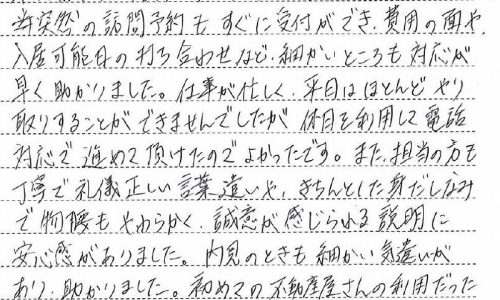 当突然の訪問予約も すぐに受付ができ、費用の面や、
入居可能日の打ち合わせなど、細かいところも 対応が
早く助かりました。仕事が忙しく、平日はほとんど やり
取りすることができませんでしたが 休日を利用して 電話
対応で 進めて頂けたのでよかったです。また、担当の方も
丁寧で礼儀正しい言葉遣いや、きちんとした身だしなみ
で物腰もやわらかく、誠意が感じられる説明に
安心感がありました。内見のときも細かい気遣いが
あり、助かりました。初めての不動産屋さんの利用だった